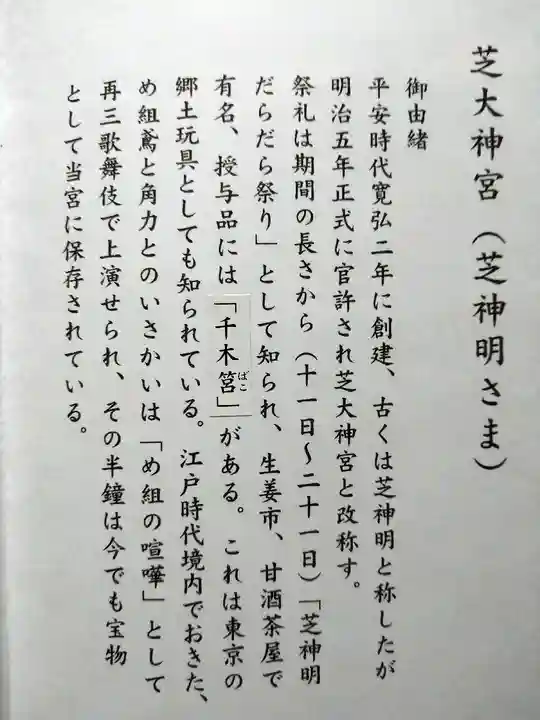 芝大神宮（芝神明さま）
御由緒
平安時代寛弘二年に創建、古くは芝神明と称したが
明治五年正式に官許され芝大神宮と改称す。
祭礼は期間の長さから（十一日〜二十一日）「芝神明
だらだら祭り」として知られ、生姜市、甘酒茶屋で
有名、授与品には「千木筥」がある。これは東京の
ばこ
郷土玩具としても知られている。江戸時代境内でおきた、
め組鳶と角力とのいさかいは「め組の喧嘩」として
再三歌舞伎で上演せられ、その半鐘は今でも宝物
として当宮に保存されている。